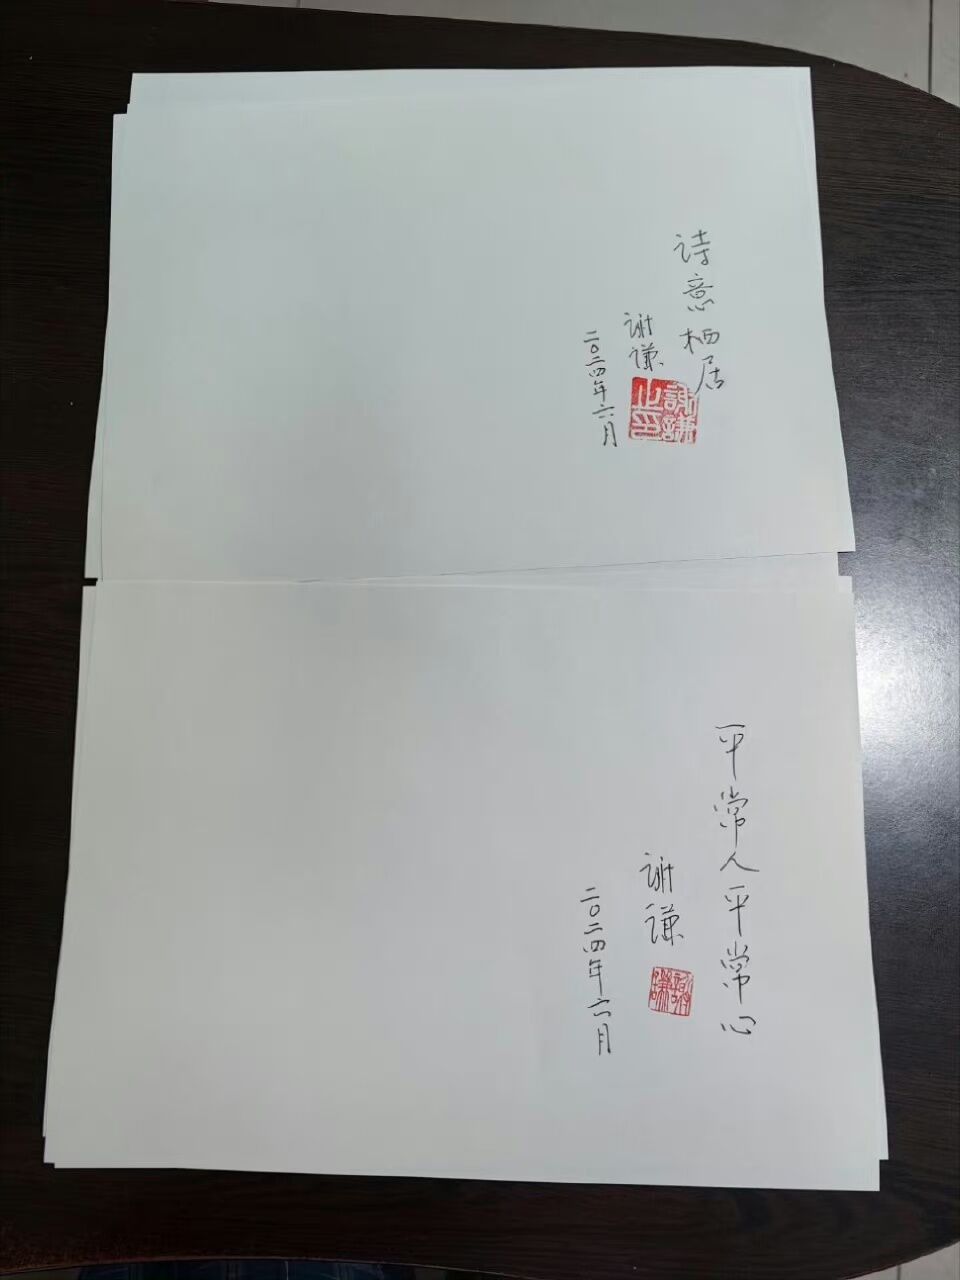 诗意栖居
谢谦
二〇二四年六月
謝謙之印
平常人平常心
谢谦
二〇二四年六月
謝謙